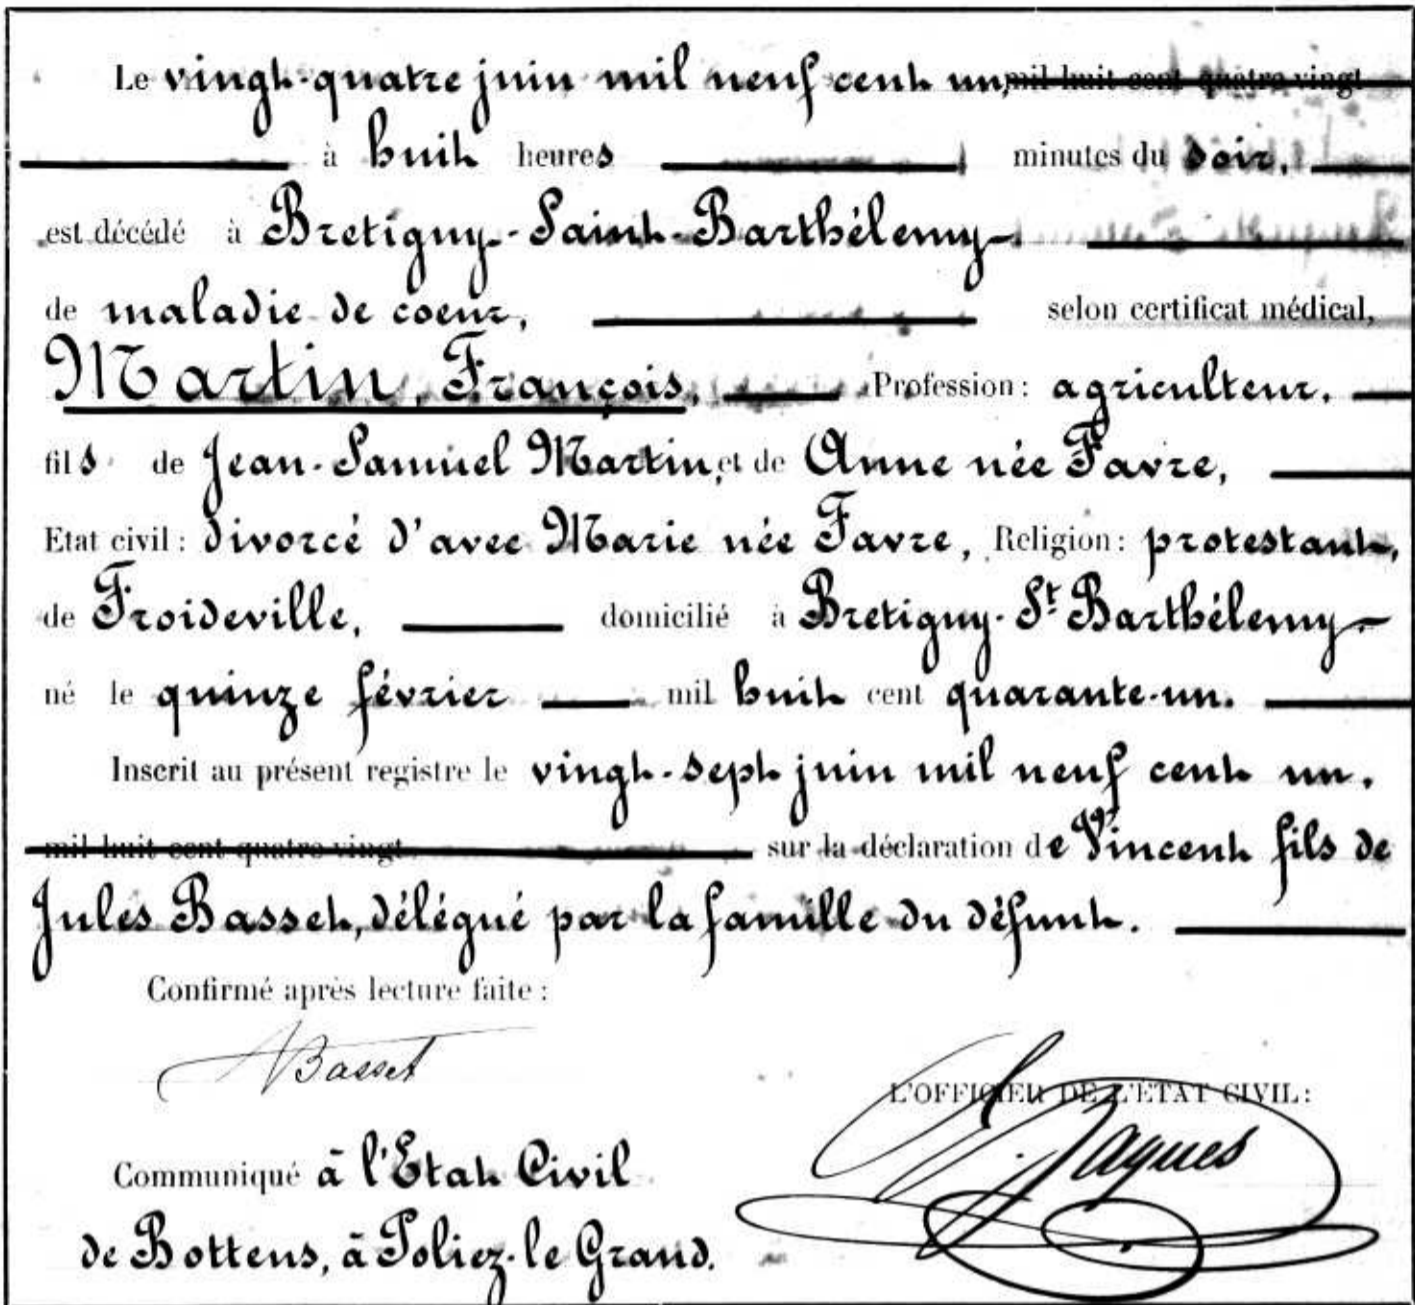 Le vingt-quatre juin mil neuf cent un, mil huit cent quatre vingt
à huit heures minutes du soir,
est décédé à Bretigny-Saint-Barthélemy
de maladie de coeur, selon certificat médical,
Martin, François, Profession: agriculteur,
fils de Jean-Samuel Martin, et de Anne née Favre,
Etat civil: divorcé d'avec Marie née Favre, Religion: protestant,
de Froideville, domicilié à Bretigny-St Barthélemy
né le quinze février mil huit cent quarante-un.
Inscrit au présent registre le vingt-sept juin mil neuf cent un.
mil huit cent quatre vingt sur la déclaration de Vincent fils de
Jules Basset, délégué par la famille du défunt.
Confirmé après lecture faite:
Basset
L'OFFICIER DE L'ÉTAT CIVIL:
Jaques
Communiqué à l'Etat Civil
de Bottens, à Poliez-le Grand.